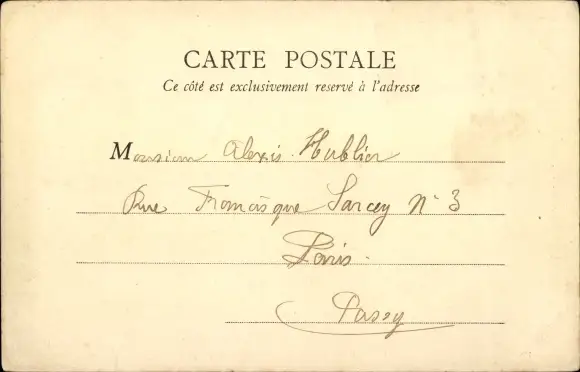 CARTE POSTALE
Ce côté est exclusivement reservé à l'adresse
Monsieur Alexis Hublier
Rue Francisque Sarcey N° 3
Paris.
Passy